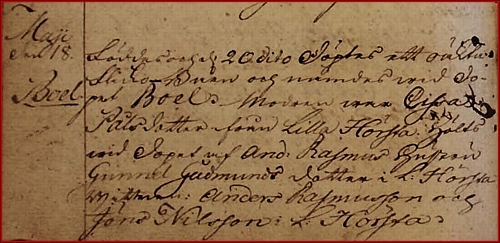 Maji
den 18.
Boel
Föddes och d 20 dito Döptes ett oäkta
Flicko-Barn och nämdes wid Do-
pet Boel. Modren war Cissa
Pålsdotter från Lilla Hörsta. Holts
wid Dopet af And: Rasmus Hustru
Gunnel Gudmunds dotter i L: Hörsta
Wittnen: Anders Rasmusson och
Jöns Nilsson: L: Hörsta.